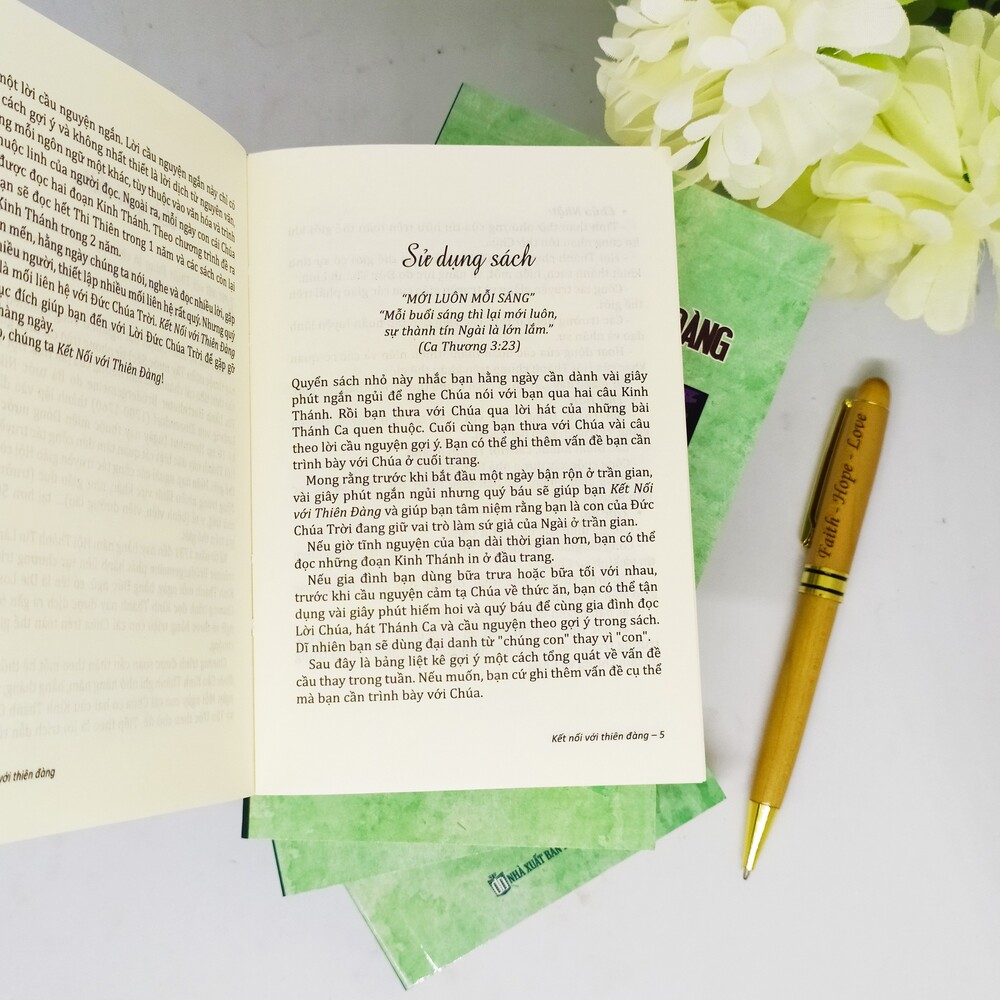 một lời cầu nguyện ngắn. Lời cầu nguyện ngắn này chỉ có
cách gợi ý và không nhất thiết là lời dịch từ nguyên văn,
mỗi ngôn ngữ một khác, tùy thuộc vào văn hóa và trình
thuộc linh của người đọc. Ngoài ra, mỗi ngày con cái Chúa
được đọc hai đoạn Kinh Thánh. Theo chương trình đề ra
bạn sẽ đọc hết Thi Thiên trong 1 năm và các sách còn lại
Kinh Thánh trong 2 năm.
mến, hằng ngày chúng ta nói, nghe và đọc nhiều lời, gặp
nhiều người, thiết lập nhiều mối liên hệ rất quý. Nhưng quý
là mối liên hệ với Đức Chúa Trời. Kết Nối với Thiên Đàng
đích giúp bạn đến với Lời Đức Chúa Trời để gặp gỡ
hàng ngày.
chúng ta Kết Nối với Thiên Đàng!
với thiên đàng
Sử dụng sách
"MỚI LUÔN MỖI SÁNG"
"Mỗi buổi sáng thì lại mới luôn,
sự thành tín Ngài là lớn lắm."
(Ca Thương 3:23)
Quyển sách nhỏ này nhắc bạn hằng ngày cần dành vài giây
phút ngắn ngủi để nghe Chúa nói với bạn qua hai câu Kinh
Thánh. Rồi bạn thưa với Chúa qua lời hát của những bài
Thánh Ca quen thuộc. Cuối cùng bạn thưa với Chúa vài câu
theo lời cầu nguyện gợi ý. Bạn có thể ghi thêm vấn đề bạn cần
trình bày với Chúa ở cuối trang.
Mong rằng trước khi bắt đầu một ngày bận rộn ở trần gian,
vài giây phút ngắn ngủi nhưng quý báu sẽ giúp bạn Kết Nối
với Thiên Đàng và giúp bạn tâm niệm rằng bạn là con của Đức
Chúa Trời đang giữ vai trò làm sứ giả của Ngài ở trần gian.
Nếu giờ tĩnh nguyện của bạn dài thời gian hơn, bạn có thể
đọc những đoạn Kinh Thánh in ở đầu trang.
Nếu gia đình bạn dùng bữa trưa hoặc bữa tối với nhau,
trước khi cầu nguyện cảm tạ Chúa về thức ăn, bạn có thể tận
dụng vài giây phút hiếm hoi và quý báu để cùng gia đình đọc
Lời Chúa, hát Thánh Ca và cầu nguyện theo gợi ý trong sách.
Dĩ nhiên bạn sẽ dùng đại danh từ "chúng con" thay vì "con".
Sau đây là bảng liệt kê gợi ý một cách tổng quát về vấn đề
cầu thay trong tuần. Nếu muốn, bạn cứ ghi thêm vấn đề cụ thể
mà bạn cần trình bày với Chúa.
Kết nối với thiên đàng – 5
ĐÀNG
NHÀ XUẤT BẢN
Faith - Hope - Love